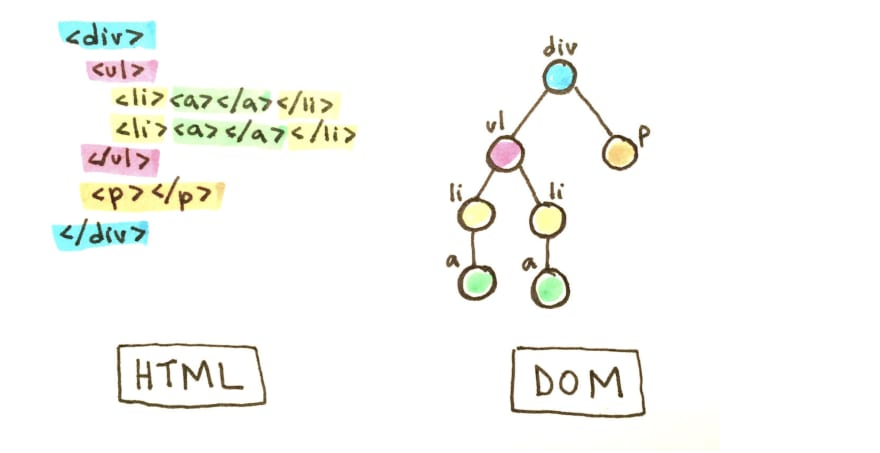 <div>
<ul>
<li><a></a></li>
<li><a></a></li>
</ul>
<p></p>
</div>
HTML
div
ul
p
li li
a a
DOM